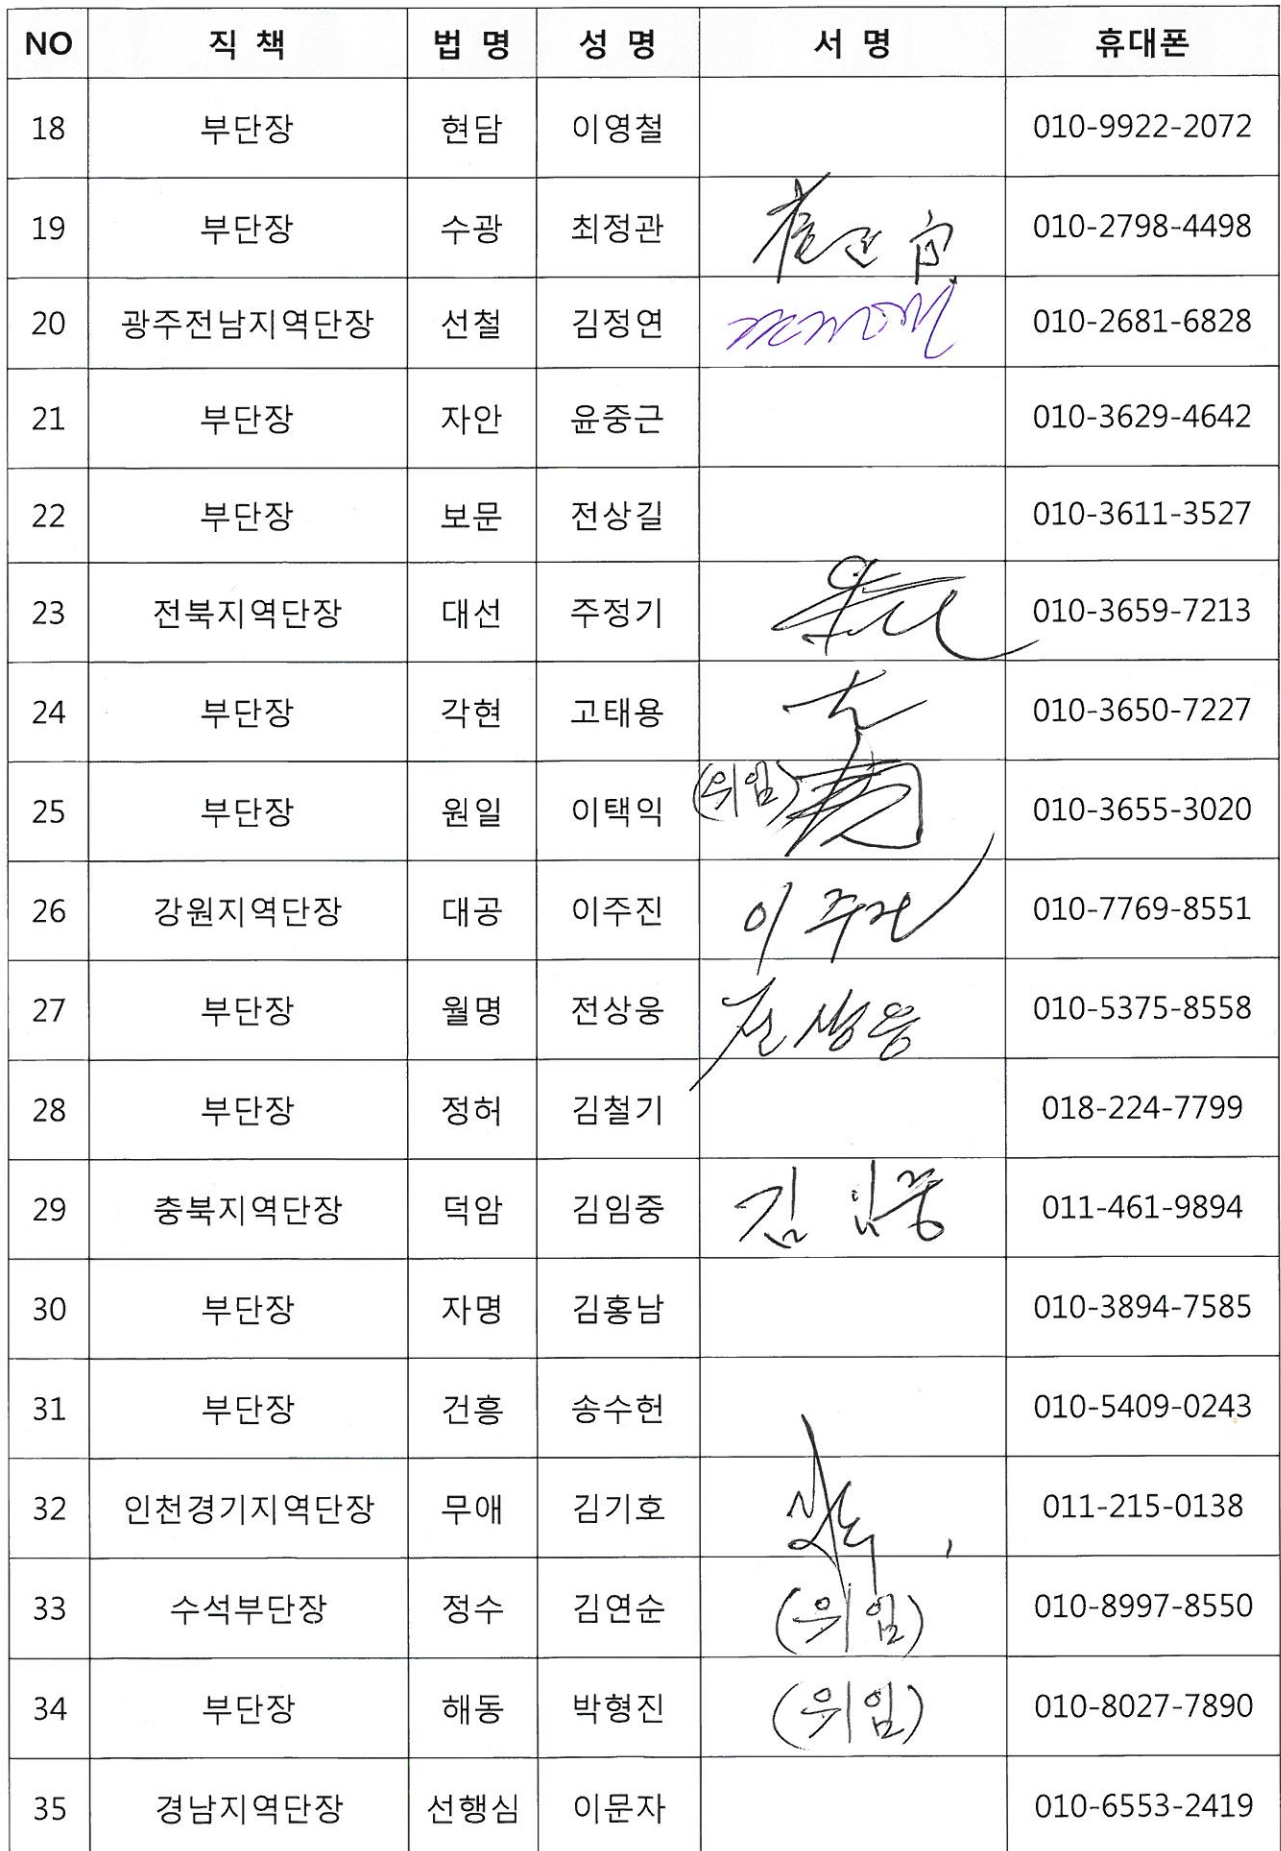 NO 직 책 법 명 성 명 서 명 휴대폰
18 부단장 현담 이영철 010-9922-2072
19 부단장 수광 최정관 010-2798-4498
20 광주전남지역단장 선철 김정연 010-2681-6828
21 부단장 자안 윤중근 010-3629-4642
22 부단장 보문 전상길 010-3611-3527
23 전북지역단장 대선 주정기 010-3659-7213
24 부단장 각현 고태용 010-3650-7227
25 부단장 원일 이택익 (위임) 010-3655-3020
26 강원지역단장 대공 이주진 이주진 010-7769-8551
27 부단장 월명 전상웅 전상웅 010-5375-8558
28 부단장 정허 김철기 018-224-7799
29 충북지역단장 덕암 김임중 김임중 011-461-9894
30 부단장 자명 김홍남 010-3894-7585
31 부단장 건흥 송수헌 010-5409-0243
32 인천경기지역단장 무애 김기호 011-215-0138
33 수석부단장 정수 김연순 (위임) 010-8997-8550
34 부단장 해동 박형진 (위임) 010-8027-7890
35 경남지역단장 선행심 이문자 010-6553-2419